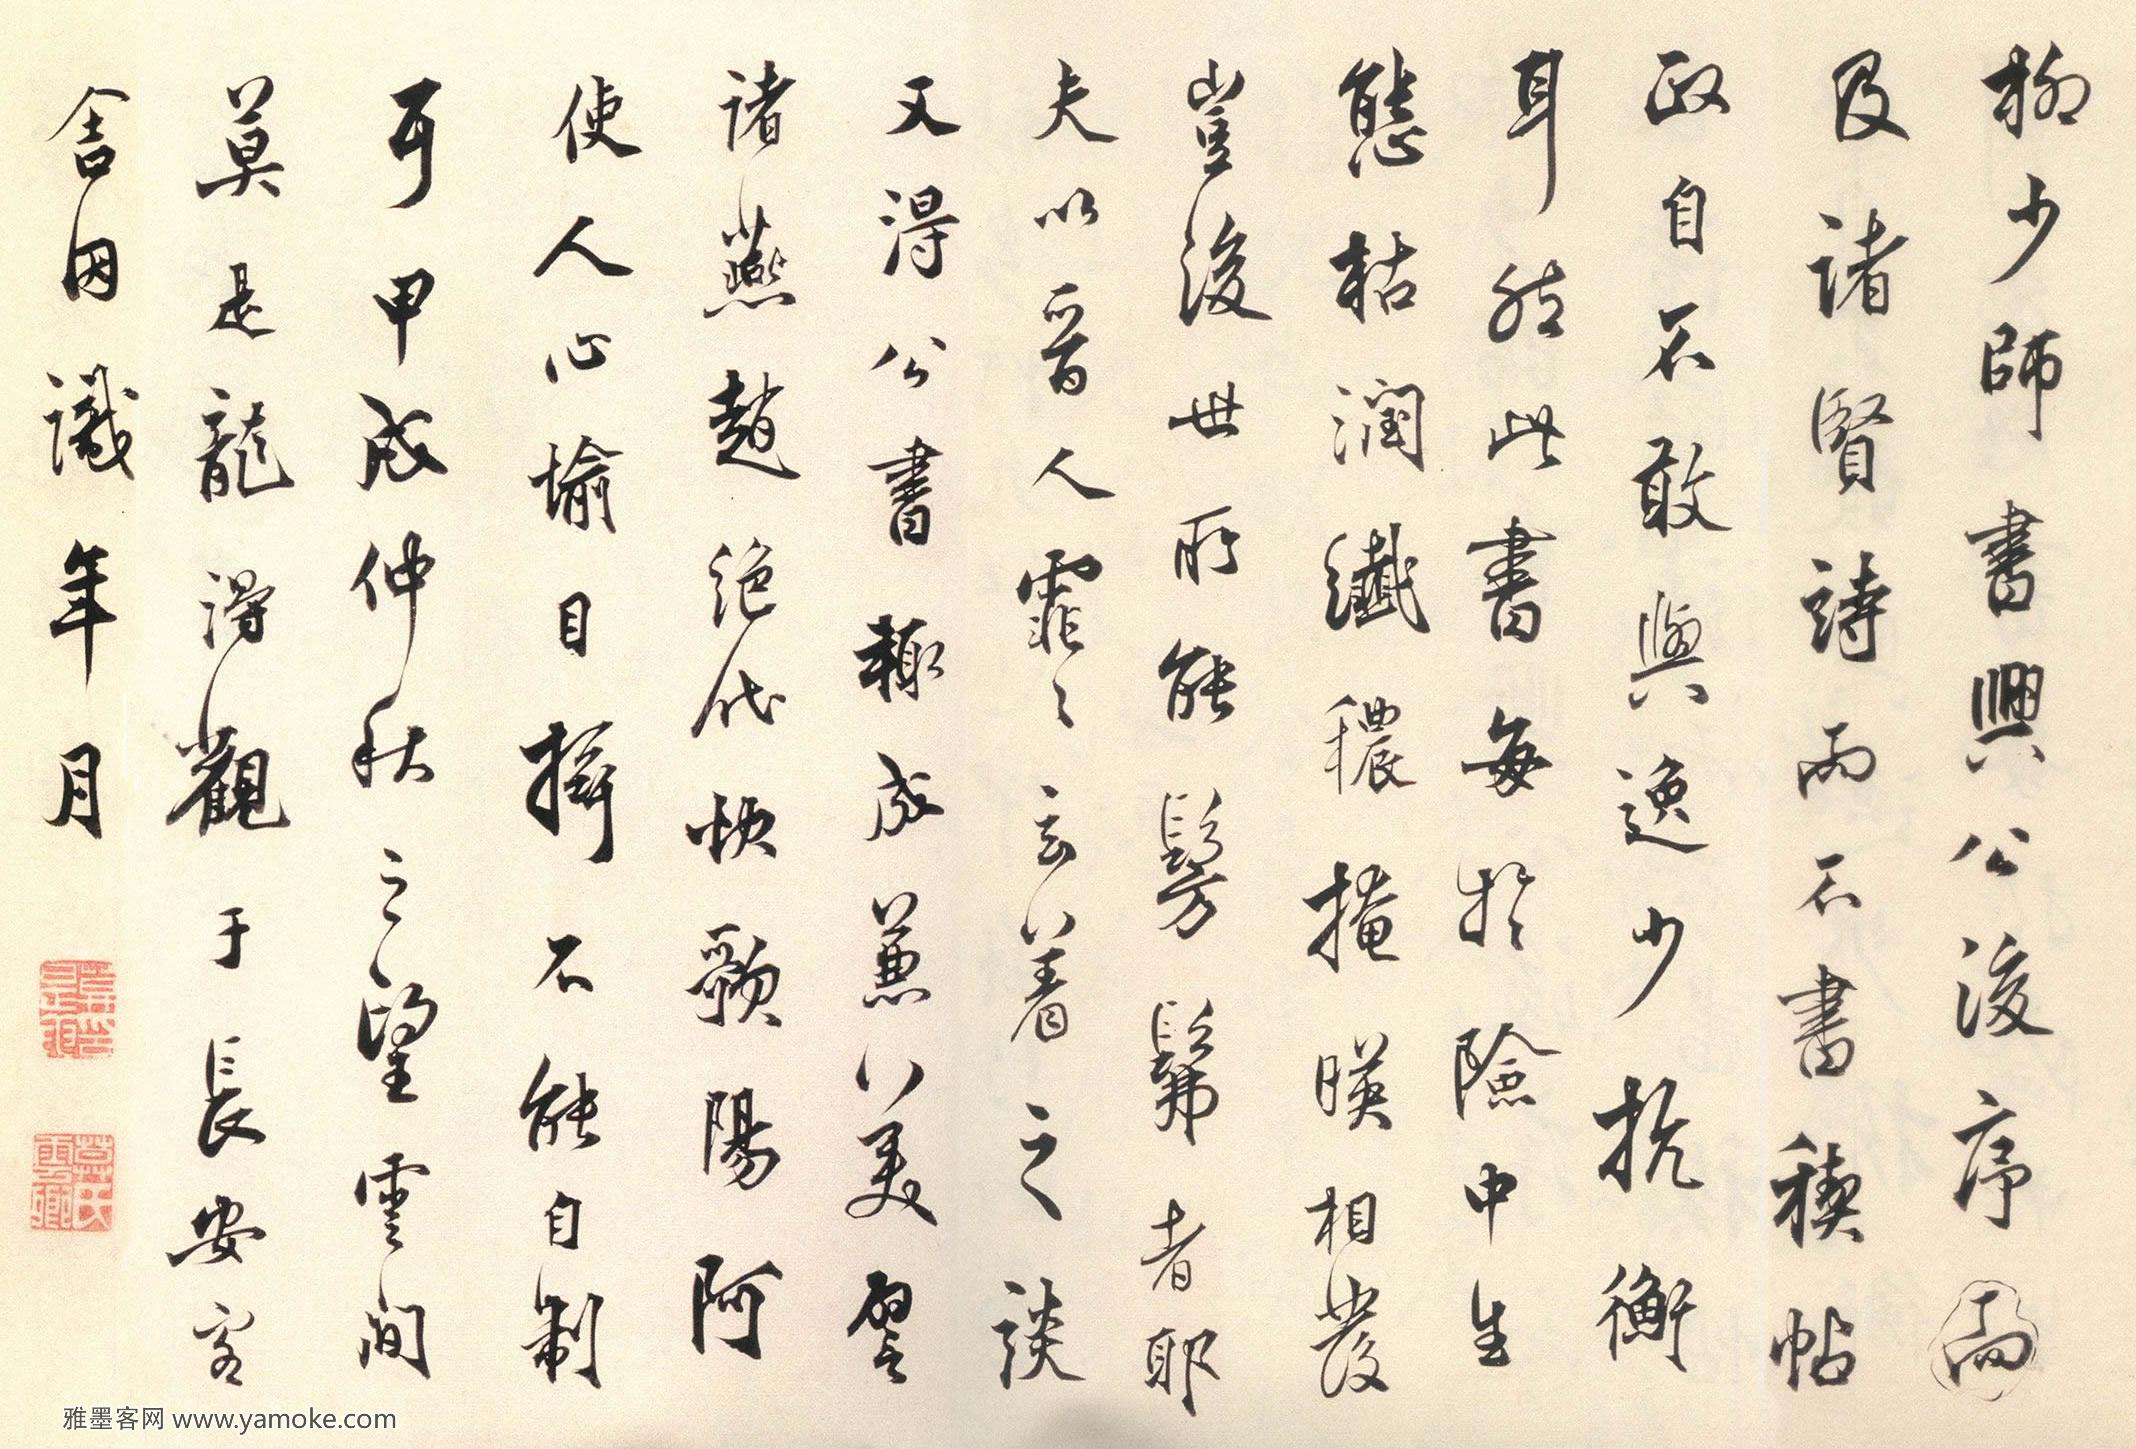 柳少師書興公後序
及諸賢詩而不書稧帖
政自不敢與逸少抗衡
耳然此書每於險中生
態枯潤纖穠掩暎相發
豈後世所能髣髴者耶
夫以晉人霏〻玄著之談
又得公書輙成兼美譬
諸燕趙絕代快歌陽阿
使人心愉目不能自制
耳甲戌仲秋之望雲間
莫是龍得觀于長安客
舍因識年月
莫氏雲卿
雅墨客网 www.yamoke.com